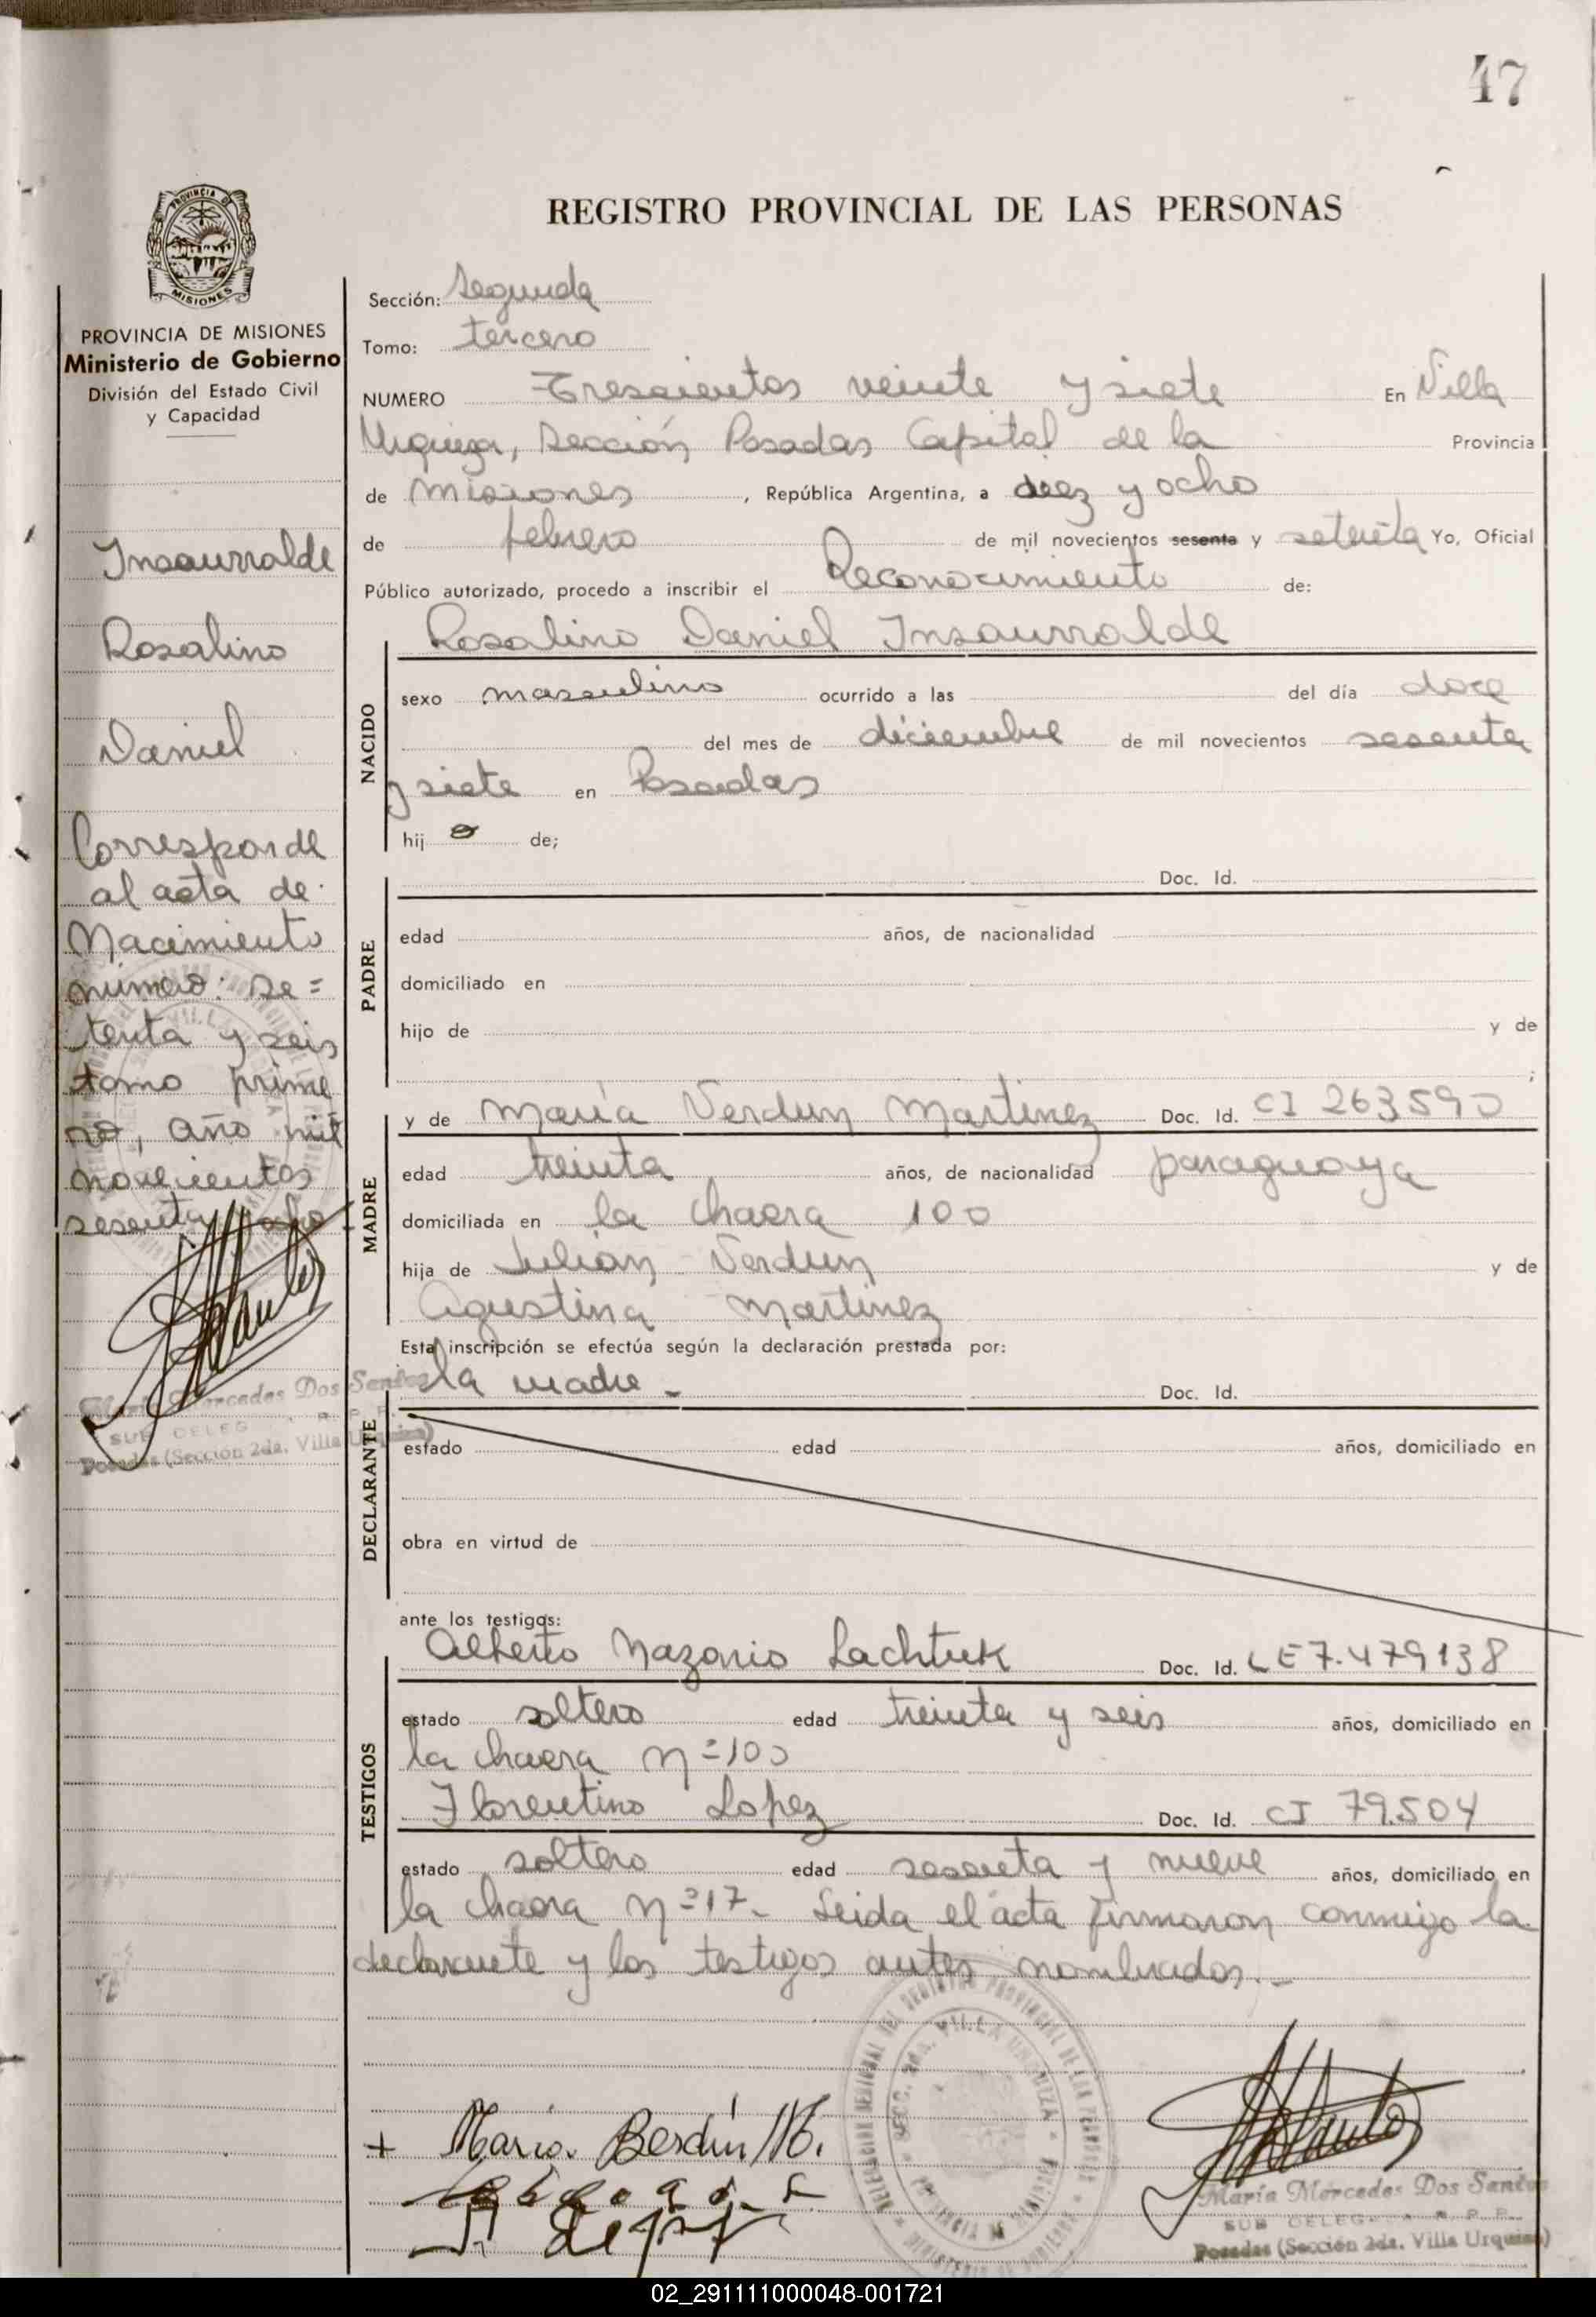 47
REGISTRO PROVINCIAL DE LAS PERSONAS
PROVINCIA DE
MISIONES
PROVINCIA DE MISIONES
Ministerio de Gobierno
División del Estado Civil
y Capacidad
Insaurralde
Rosalino
Daniel
Corresponde
al acta de
Nacimiento
número: se=
tenta y seis
tomo prime
ro, año mil
novecientos
sesenta y ocho
María Mercedes Dos Santos
SUB DELEG. R. P. P.
Posadas (Sección 2da. Villa Urquiza)
Sección: Segunda
Tomo: tercero
NUMERO Trescientos veinte y siete En Villa
Urquiza, Sección Posadas Capital de la Provincia
de Misiones, República Argentina, a diez y ocho
de febrero de mil novecientos sesenta y setenta Yo, Oficial
Público autorizado, procedo a inscribir el Reconocimiento de:
Rosalino Daniel Insaurralde
NACIDO
sexo masculino ocurrido a las del día doce
del mes de diciembre de mil novecientos sesenta
y siete en Posadas
hij o de;
PADRE
Doc. Id.
edad años, de nacionalidad
domiciliado en
hijo de y de
;
MADRE
y de María Verdun Martinez Doc. Id. CI 263590
edad treinta años, de nacionalidad paraguaya
domiciliada en la chacra 100
hija de Julian Verdun y de
Agustina Martinez
Esta inscripción se efectúa según la declaración prestada por:
DECLARANTE
la madre - Doc. Id.
estado edad años, domiciliado en
obra en virtud de
ante los testigos:
TESTIGOS
Alberto Nazario Lachtuk Doc. Id. LE 7.479138
estado soltero edad treinta y seis años, domiciliado en
la chacra nº 100
Florentino Lopez Doc. Id. CI 79.504
estado soltero edad sesenta y nueve años, domiciliado en
la chacra nº 17.- Leida el acta firmaron conmigo la
declarante y los testigos antes nombrados.-
+ María Berdún M.
DELEGACION REGIONAL DEL REGISTRO PROVINCIAL DE LAS PERSONAS
SECC. 2da. VILLA URQUIZA
María Mercedes Dos Santos
SUB DELEG. R. P. P.
Posadas (Sección 2da. Villa Urquiza)
02_291111000048-001721